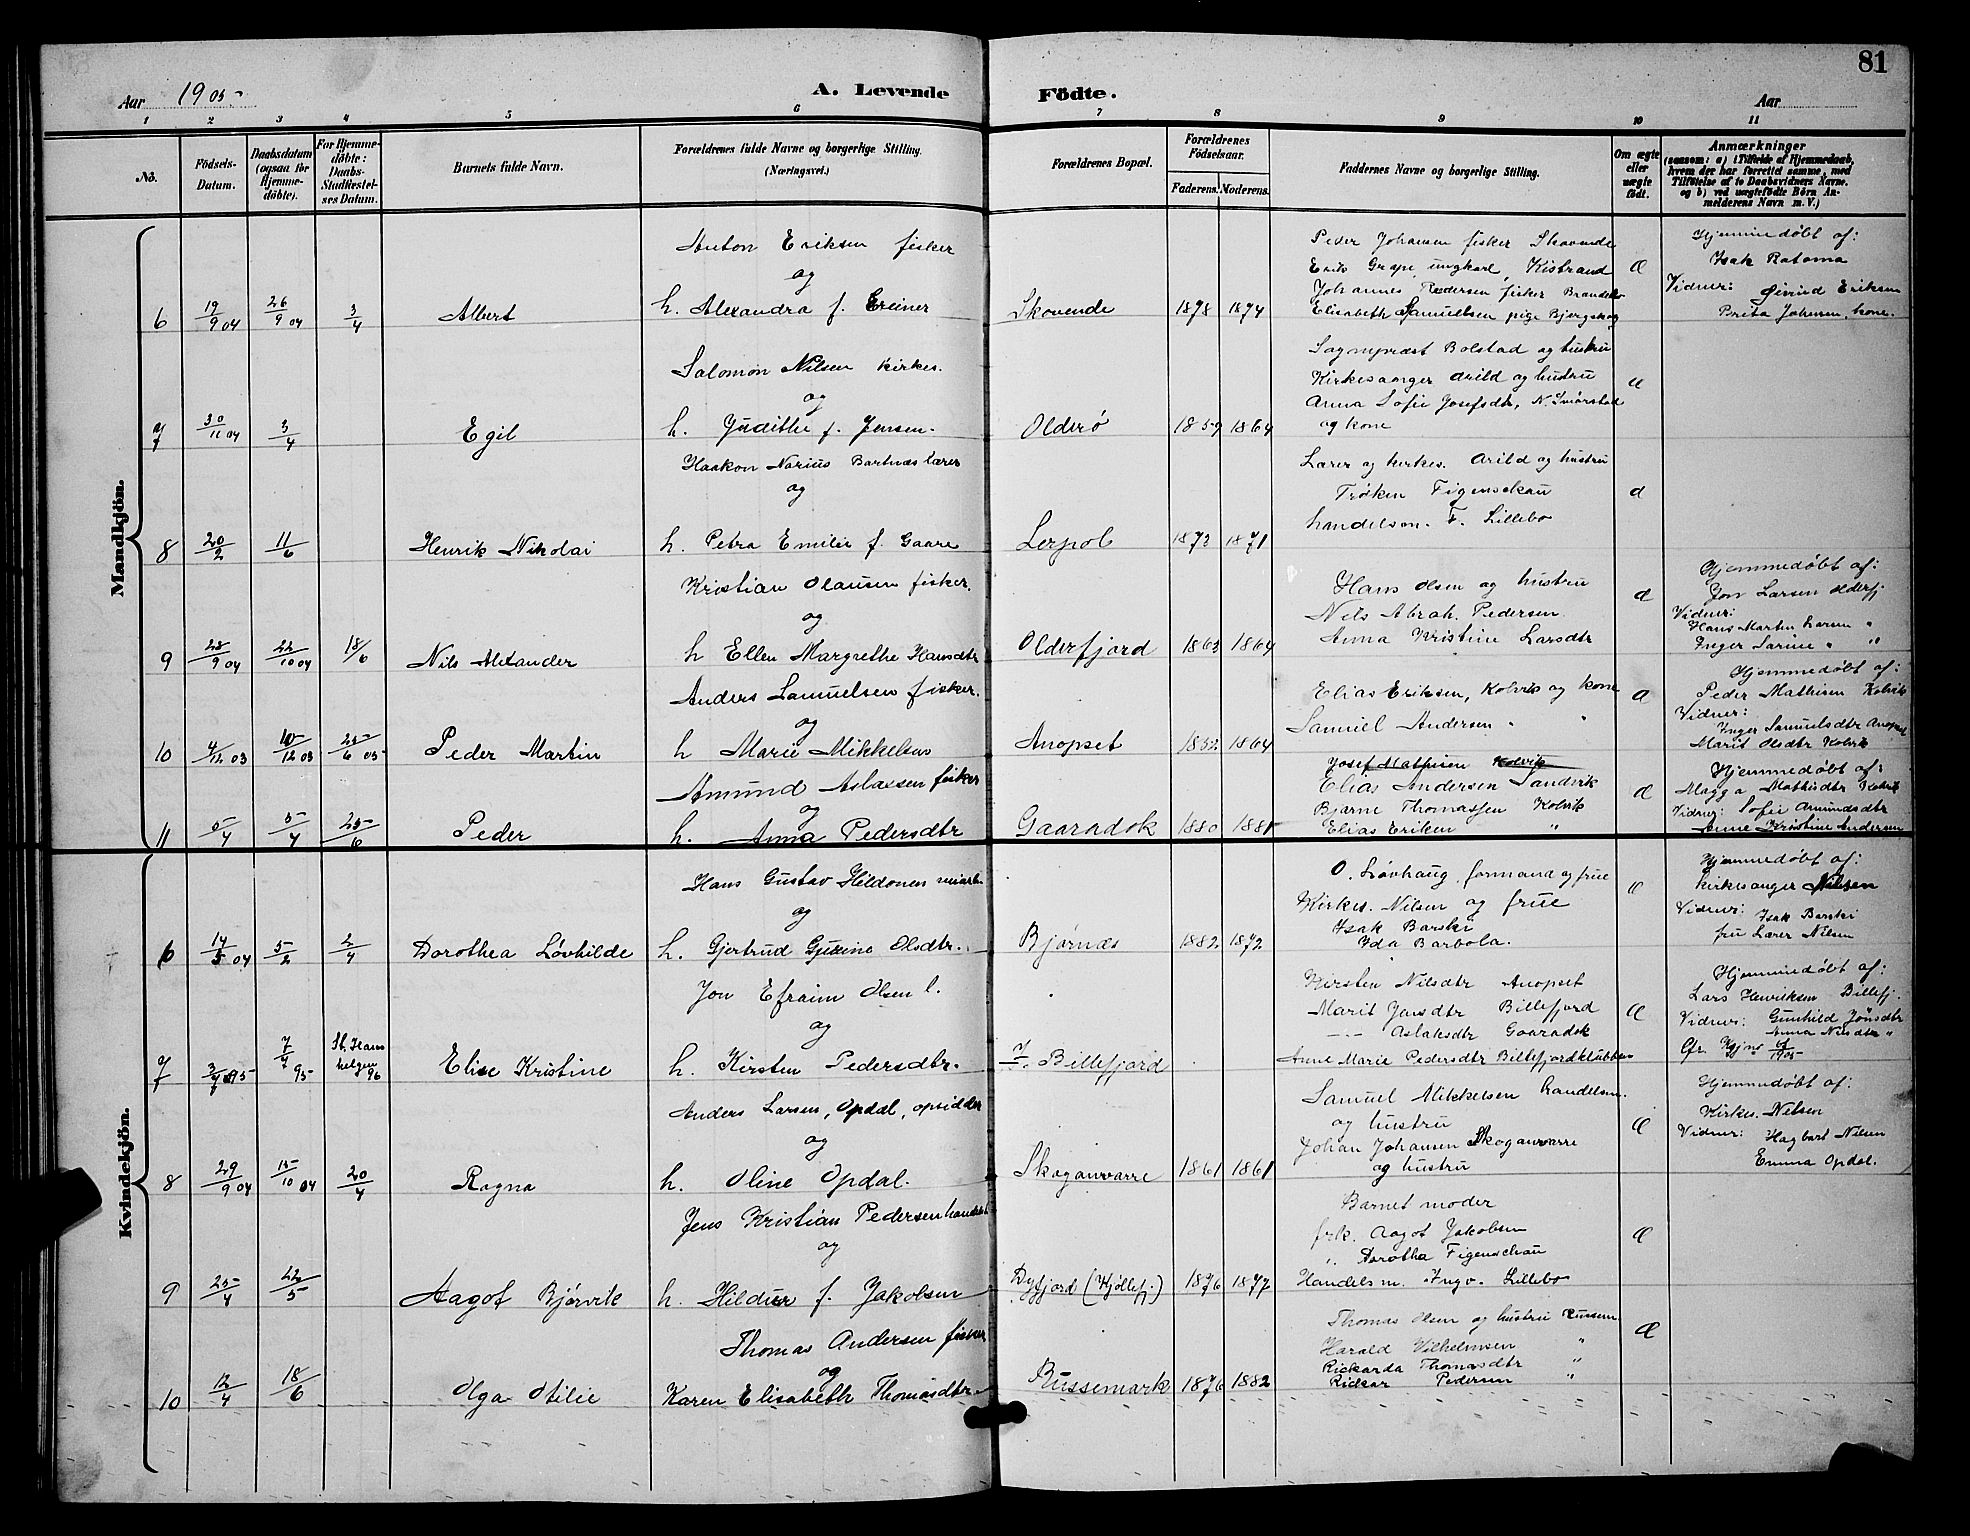 81
Aar 1905-
A. Levende Födte.
Aar
1 2 3 4 5 6 7 8 9 10 11
No.
Födsels-Datum.
Daabsdatum (ogsaa for Hjemmedöbte).
For Hjemmedöbte: Daabs-Stadfæstelses Datum.
Barnets fulde Navn.
Forældrenes fulde Navne og borgerlige Stilling. (Næringsvei.)
Forældrenes Bopæl.
Forældrenes Födselsaar.
Faderens. Moderens.
Faddernes Navne og borgerlige Stilling.
Om ægte eller uægte födt.
Anmærkninger
(saasom: a) i Tilfælde af Hjemmedaab, hvem der har forrettet samme, med Tilföielse af to Daabsvidners Navne, og b) ved uægtefödte Börn Anmelderens Navn m. V.)
Mandkjön.
6 19/9 04 26/9 04 3/4 Albert
Anton Eriksen fisker
og
h. Alexandra f. Greiner
Skovende 1878 1874
Peder Johansen fisker Skovende
Erik Grape, ungkarl, Kistrand
Johannes Pedersen fisker
Elisabeth Samuelsen pige
Hjemmedøbt af:
Isak Ratama
Vidner: Øivind Eriksen
Brita Johnsen, kone.
7 30/11 04 3/4 Egil
Salomon Nilsen kirkes.
og
h. Judithe f. Jensen.
Olderø 1859 1864
Sognepræst Bolstad og hustru
Kirkesanger Arild og hustru
Anna Sofie Josefsdtr, N. Smørstad
og kone
8 20/2 11/6 Henrik Nikolai
Haakon Narius Bartnæs lærer
og
h. Petra Emilie f. Gaare
Lerpol 1873 1871
Lærer og kirkes. Arild og hustru
Trøken Figenschau
handelsm. F. Lillebo
9 28/9 04 22/10 04 18/6 Nils Alexander
Kristian Olausen fisker.
og
h Ellen Margrethe Hansdtr
Olderfjord 1863 1864
Hans Olsen og hustru
Nils Abrah. Pedersen
Anna Kristine Larsdtr
Hjemmedøbt af:
Jon Larsen Olderfj.
Vidner:
Hans Martin Larsen "
Inger Sarine " "
10 4/12 03 10/12 03 25/6 05 Peder Martin
Anders Samuelsen fisker.
og
h Marie Mikkelsen
Anopset 1852 1864
Elias Eriksen, Kolvik og kone
Samuel Andersen " "
Hjemmedøbt af:
Peder Mathisen Kolvik
Vidner:
Inger Samuelsdtr Anopset
Marit Olsdtr Kolvik
11 5/4 5/4 25/6 Peder
Amund Aslaksen fisker
og
h. Anna Pedersdtr
Gaaradok 1880 1881
Josef Mathisen Kolvik
Elias Andersen Sandvik
Bjarne Thomassen Kolvik
Elias Eriksen "
Hjemmedøbt af:
Magga Mathisdtr Kolvik
Vidner: Sofie Amundsdtr
Anne Kristine Andersen
Kvindekjön.
6 14/5 04 5/2 2/4 Dorothea Løvhilde
Hans Gustav Hildonen
og
h. Gjertrud Gjurine Olsdtr.
Bjørnæs 1882 1872
O. Løvhaug, formand og frue
Kirkes. Nilsen og frue
Isak Barski
Ida Barbola.
Hjemmedøbt af:
Kirkesanger Nilsen
Vidner: Isak Barski
fru Lærer Nilsen
7 7/4 95 St. Hans helgen 96 Elise Kristine
Jon Efraim Olsen l.
og
h. Kirsten Pedersdtr.
I. Billefjord
Kirsten Nilsdtr Anopset
Marit Jonsdtr Billefjord
--- Aslaksdtr Gaaradok
Anne Marie Pedersdtr Billefjordklubben
Hjemmedøbt af:
Lars Henriksen Billefj.
Vidner: Gunhild Jönsdtr
Anna Nilsdtr "
8 29/9 04 15/10 04 20/4 Ragna
Anders Larsen, Opdal, opsidder
og
h. Oline Opdal.
Skoganvarre 1861 1861
Samuel Mikkelsen handelsm.
og hustru
Johan Johansen Skoganvarre
og hustru
Hjemmedøbt af:
Kirkes. Nilsen
Vidner: Hagbart Nilsen
Emma Opdal.
9 25/4 22/5 Aagot Bjørvik
Jens Kristian Pedersen
og
h. Hildur f. Jakobsen
Dyfjord (Kjøllefj.) 1876 1877
Barnet moder
frk. Aagot Jakobsen
" Dorothea Figenschau
Handelsm. Ingv. Lillebo
10 12/4 18/6 Olga Otilie
Thomas Andersen fisker
og
Karen Elisabeth Thomasdtr.
Russemark 1876 1882
Thomas Olsen og hustru Russem.
Harald Vilhelmsen "
Rickarda Thomasdtr "
Rickar Pedersen "